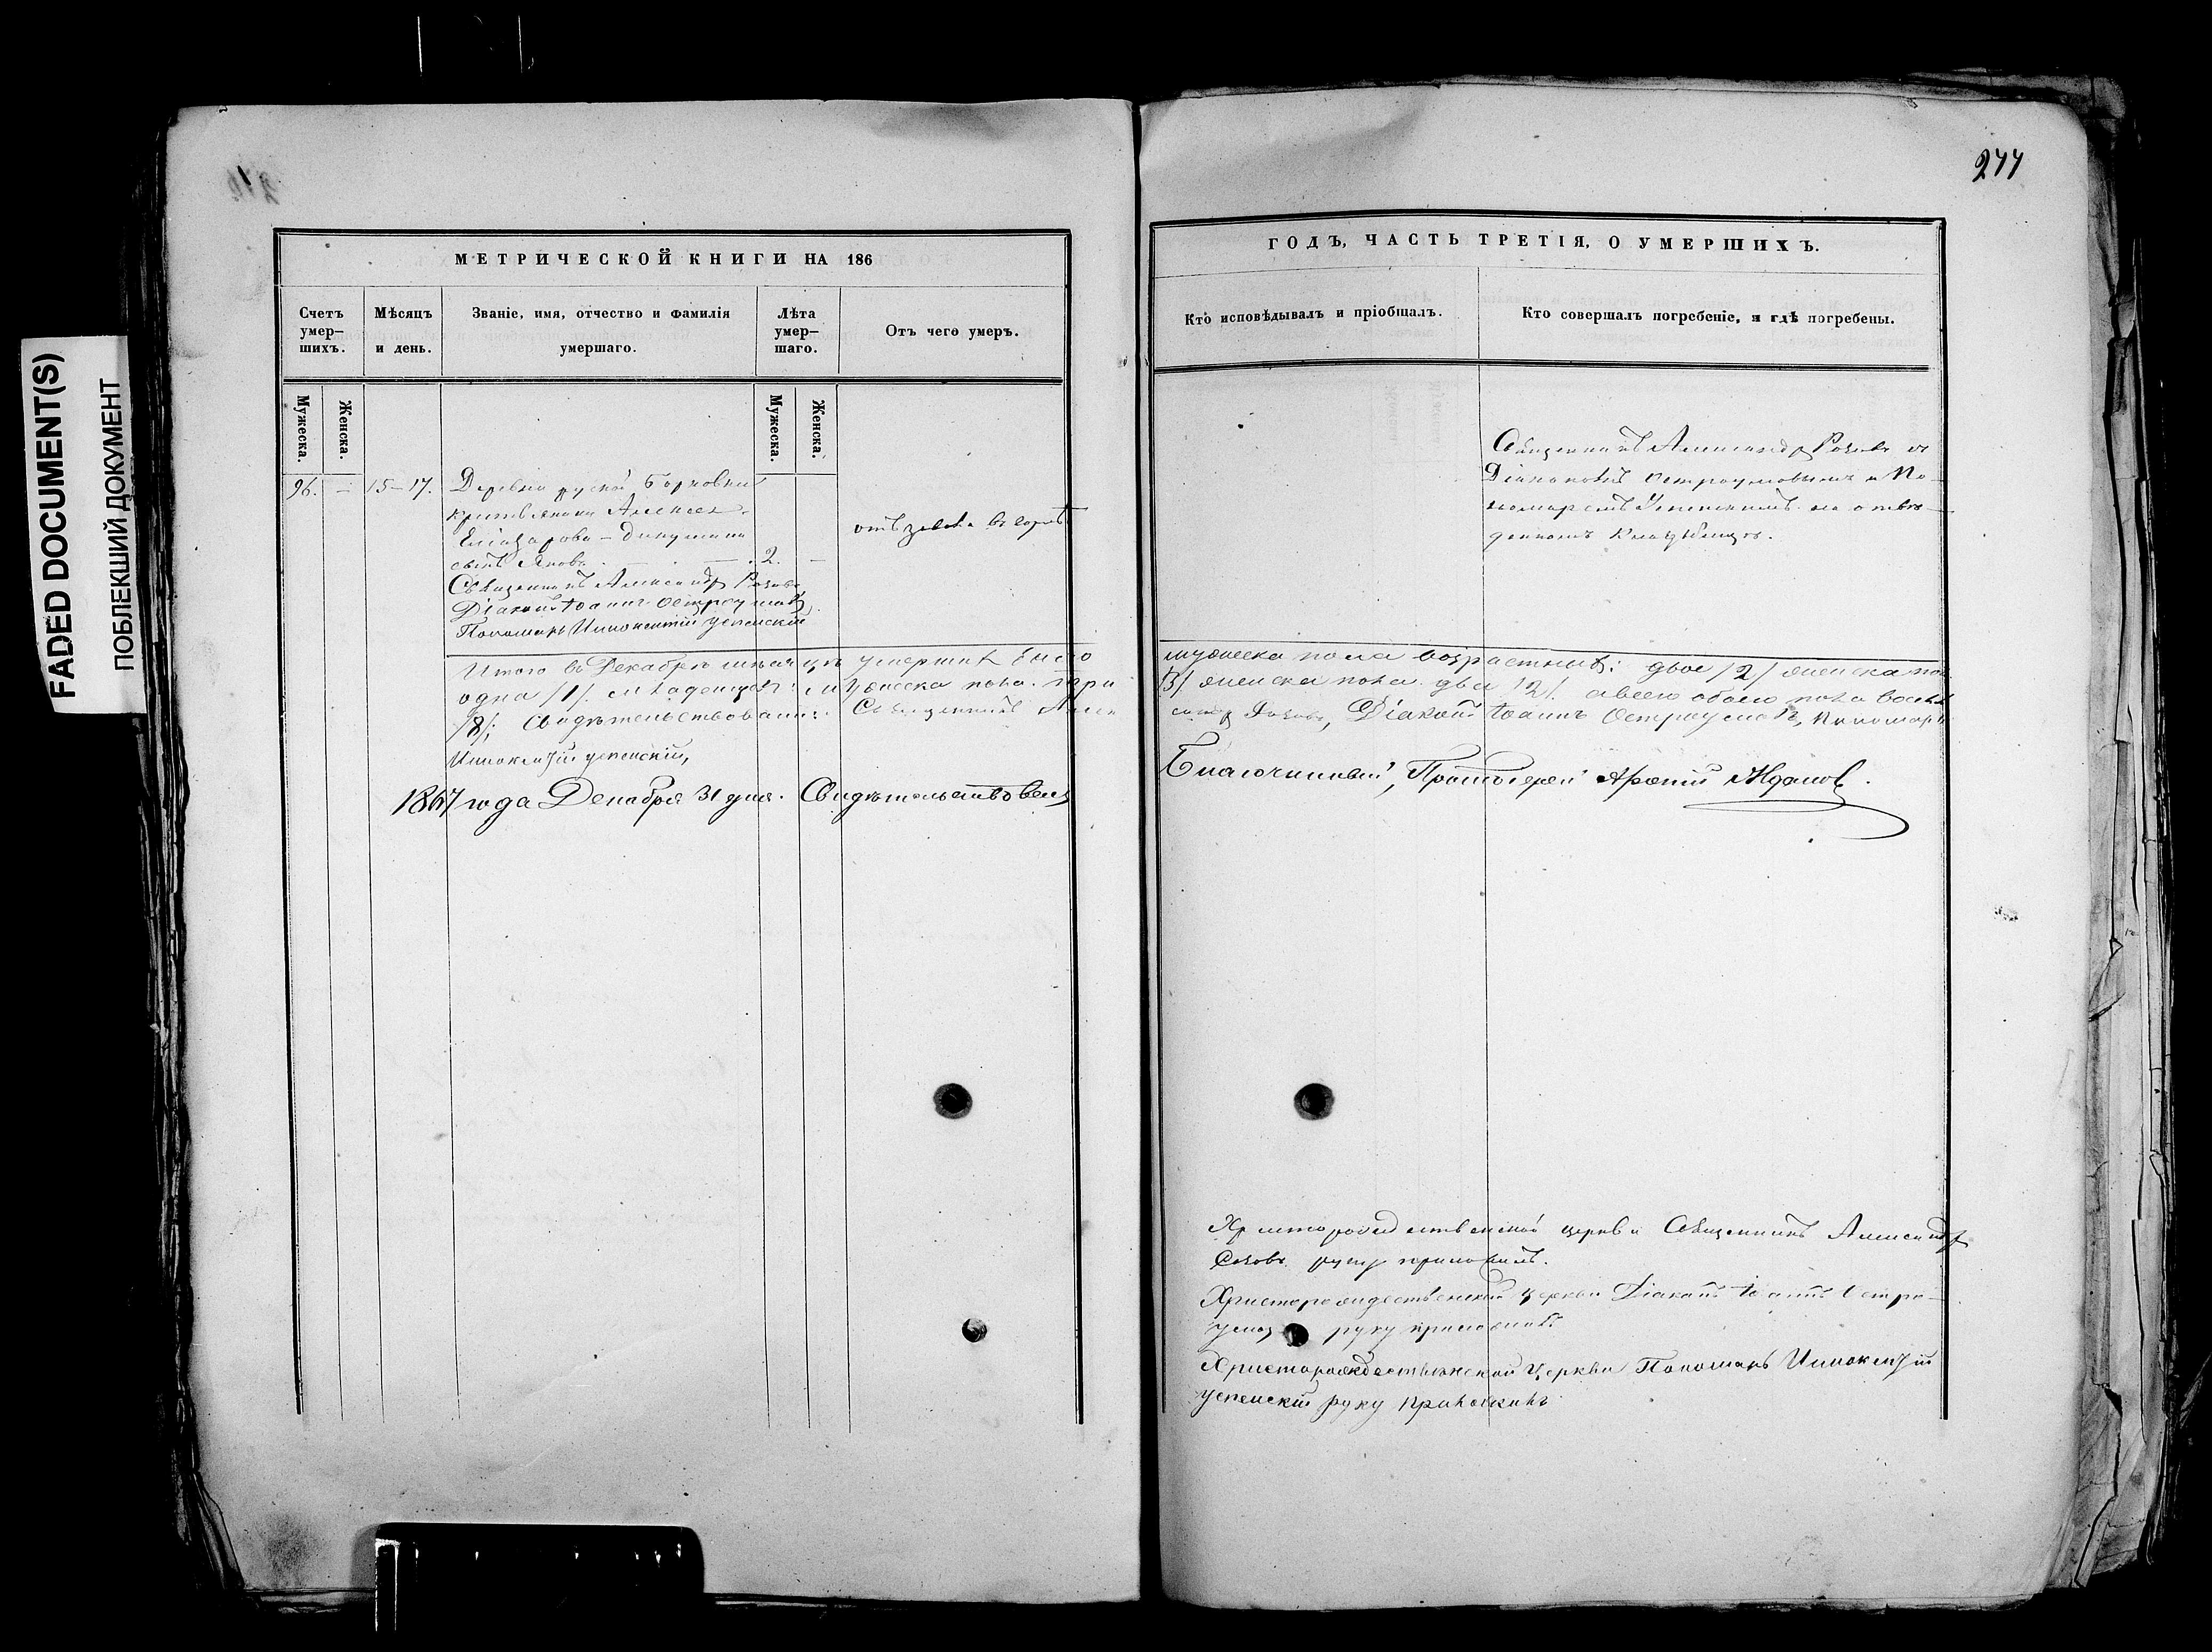 FADED DOCUMENT(S)
ПОБЛЕКШИЙ ДОКУМЕНТ
МЕТРИЧЕСКОЙ КНИГИ НА 186
Счетъ умер–шихъ.
Мѣсяцъ и день.
Званіе, имя, отчество и фамилія умершаго.
Лѣта умер–шаго.
Отъ чего умеръ.
Мужеска.
Женска.
Мужеска.
Женска.
96. – 15–17. Деревни
крестьянина Алексея
Елиазарова –
сынъ Яковъ. 2. –
отъ въ горлѣ
Священникъ Александръ
Діаконъ Іоаннъ Остроумовъ,
Пономарь Иннокентій Успенскій
Итого въ Декабрѣ мѣсяцѣ умершихъ было
одна /1/. младенцевъ: мужеска пола три
/8/; Свидѣтельствовали: Священникъ Алек
Иннокентій Успенскій,
1867 года Декабря 31 дня. Свидѣтельствовалъ
277
ГОДЪ, ЧАСТЬ ТРЕТІЯ, О УМЕРШИХЪ.
Кто исповѣдывалъ и пріобщалъ.
Кто совершалъ погребеніе, и гдѣ погребены.
Священникъ Александръ съ
Діакономъ Остроумовымъ и По–
номаремъ Успенскимъ на отве–
денномъ кладбищѣ.
мужеска пола возрастныхъ: двое /2/ женска пола
/3/ женска пола два /2/. а всего обоего пола восемь
сандръ Діаконъ Іоаннъ Остроумовъ, Пономарь
Благочинный, Протоіерей
Христорождественской церкви Священникъ Александръ
руку приложилъ.
Христорождественской церкви Діаконъ Іоаннъ Остро–
умовъ руку приложилъ
Христорождественской Церкви Пономарь Иннокентій
Успенскій руку приложилъ